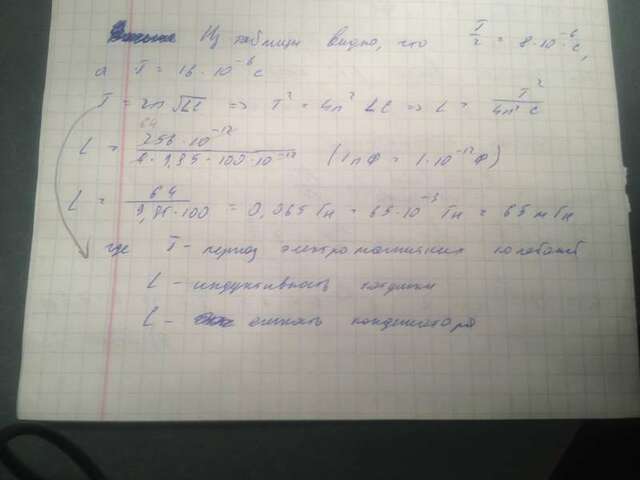 Из таблицы видно, что T/2 = 8·10⁻⁶ с,
а T = 16·10⁻⁶ с
T = 2π√LC => T² = 4π² LC => L = T²/4π²C
L = 256·10⁻¹²/4·9,85·100·10⁻¹² (1пФ = 1·10⁻¹²Ф) 64
L = 64/9,85·100 = 0,065 Гн = 65·10⁻³ Гн = 65 мГн
где T - период электромагнитных колебаний
L - индуктивность катушки
C - емкость конденсатора